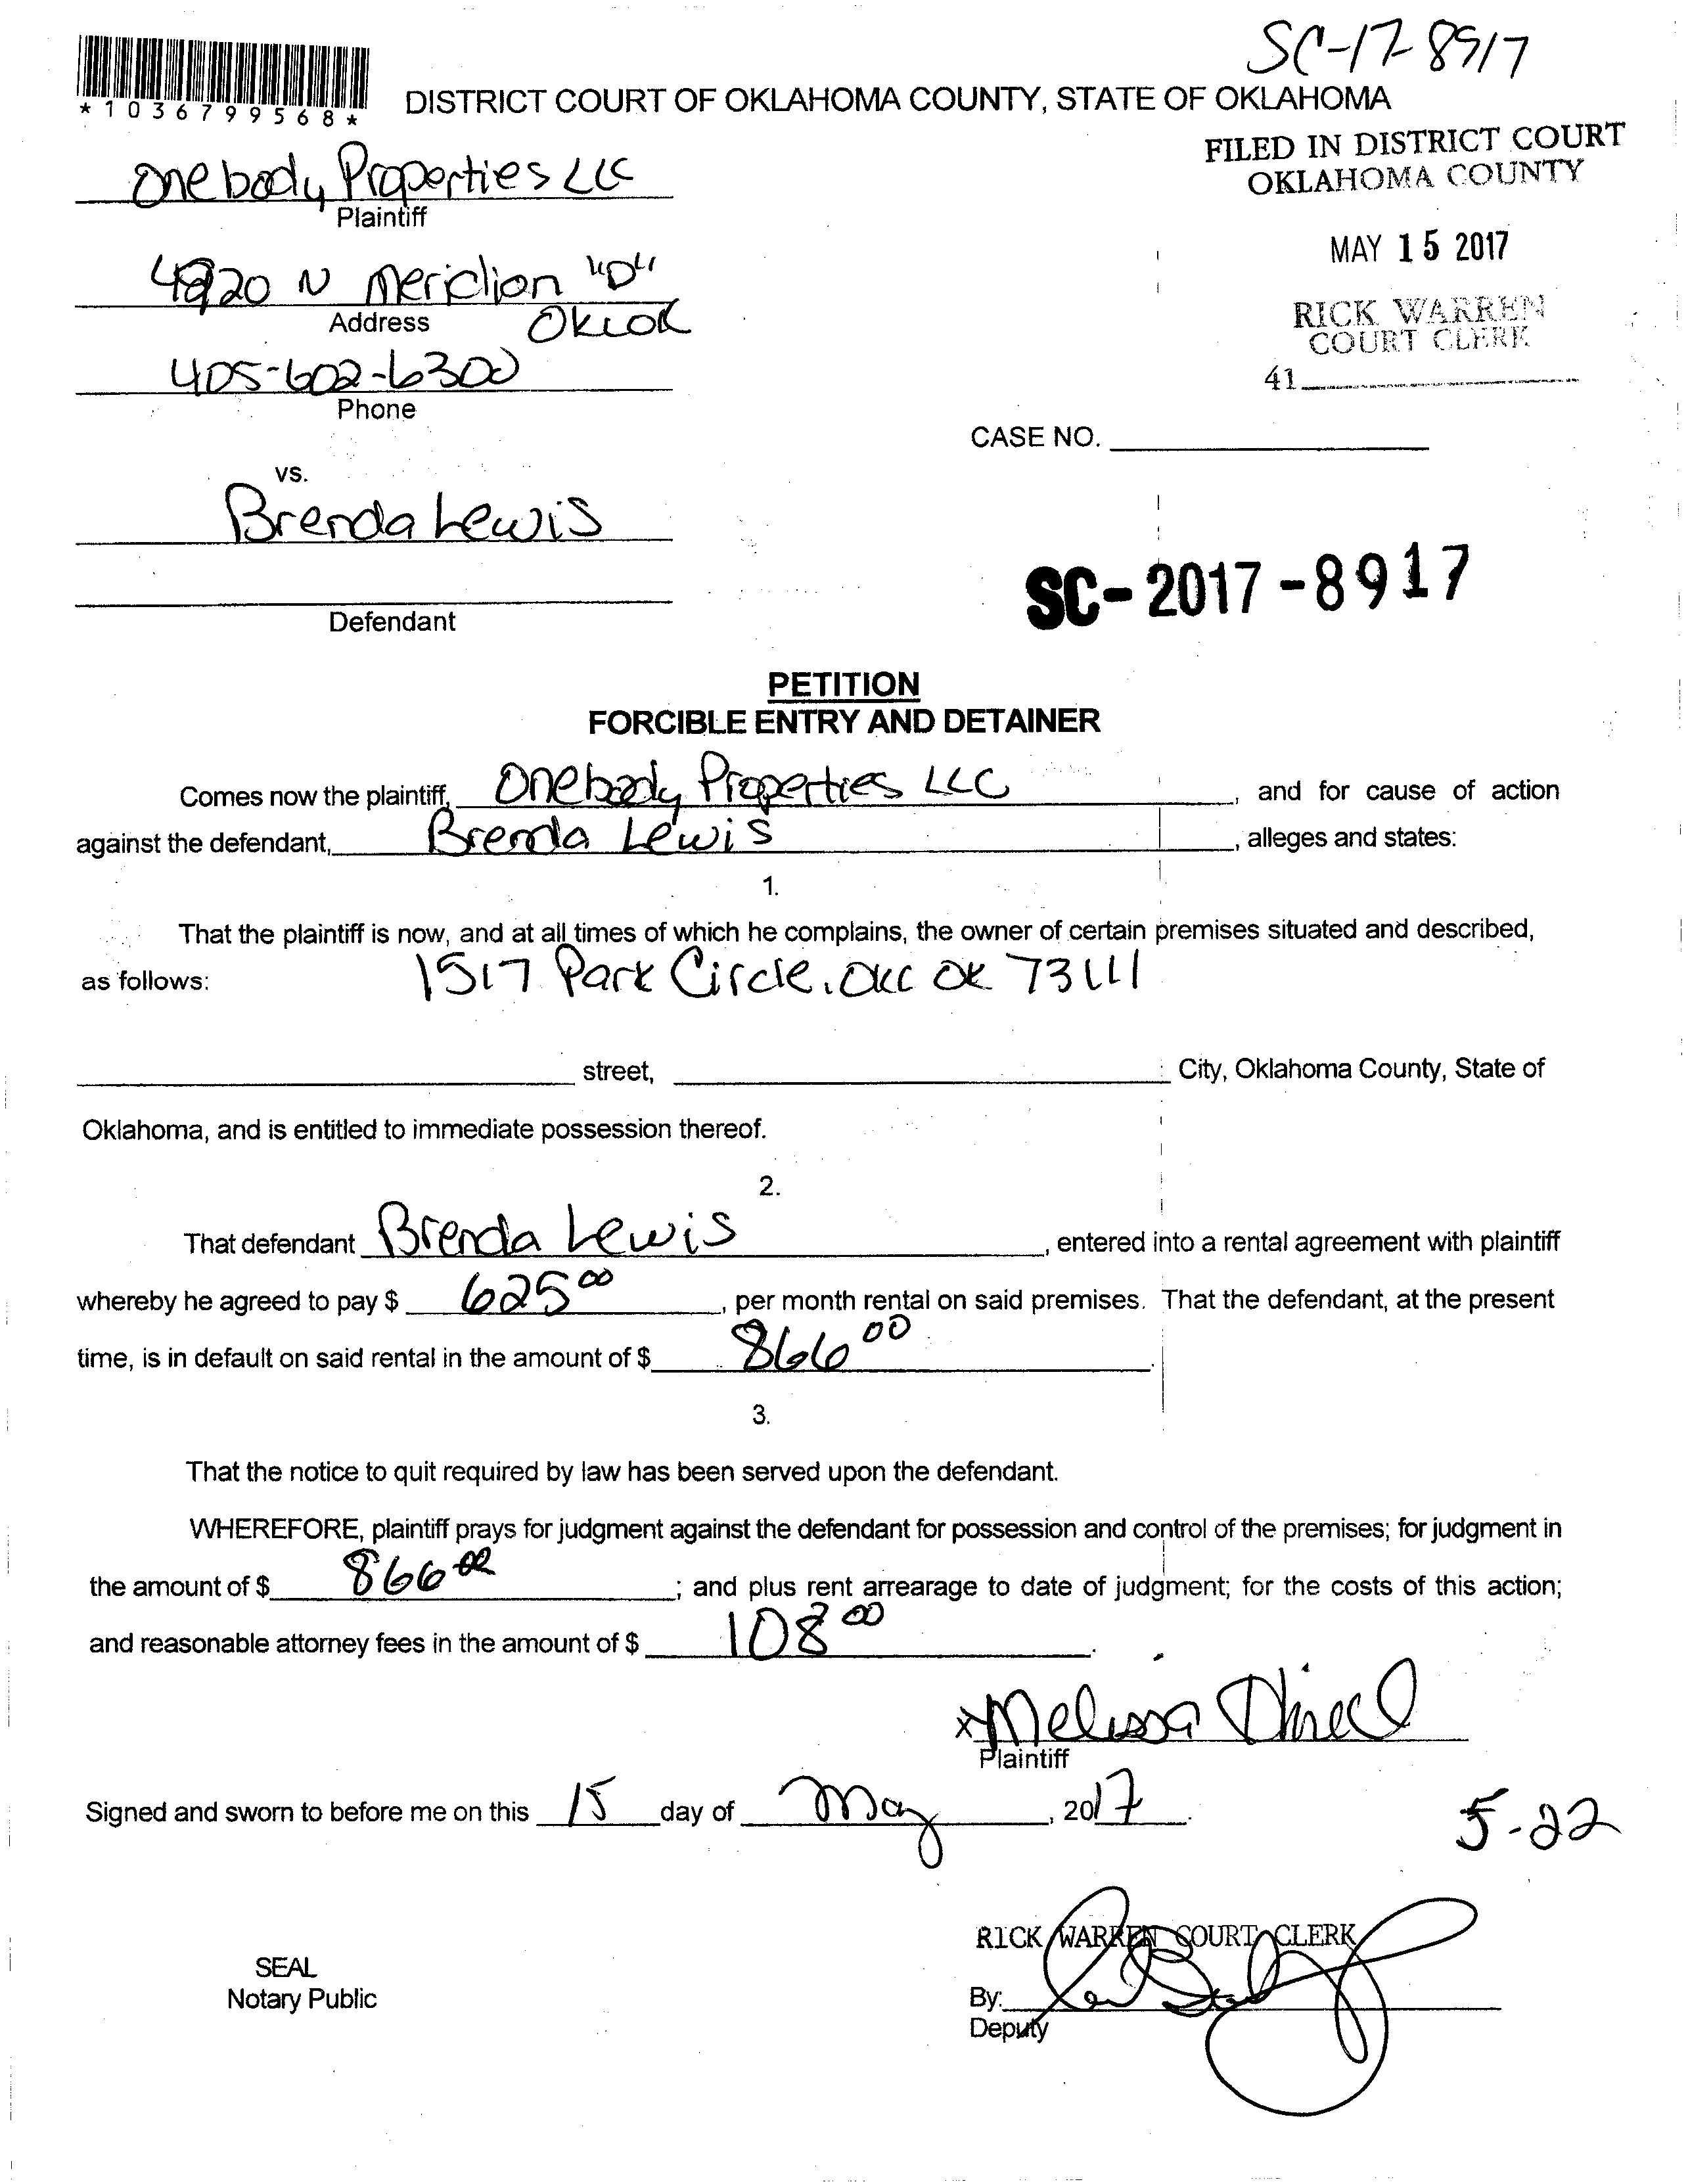 SC-17-8917
*1036799568*
DISTRICT COURT OF OKLAHOMA COUNTY, STATE OF OKLAHOMA
FILED IN DISTRICT COURT
OKLAHOMA COUNTY
Onebody Properties LLC
Plaintiff
MAY 15 2017
4920 N Meridian "D"
Address
OKC OK
RICK WARREN
COURT CLERK
405-602-6300
41
Phone
CASE NO.
vs.
Brenda Lewis
SC-2017-8917
Defendant
PETITION
FORCIBLE ENTRY AND DETAINER
Comes now the plaintiff, Onebody Properties LLC, and for cause of action
against the defendant, Brenda Lewis, alleges and states:
1.
That the plaintiff is now, and at all times of which he complains, the owner of certain premises situated and described,
as follows: 1517 Park Circle. OKC OK 73111
street, City, Oklahoma County, State of
Oklahoma, and is entitled to immediate possession thereof.
2.
That defendant Brenda Lewis, entered into a rental agreement with plaintiff
whereby he agreed to pay $ 625 00, per month rental on said premises. That the defendant, at the present
time, is in default on said rental in the amount of $ 866 00.
3.
That the notice to quit required by law has been served upon the defendant.
WHEREFORE, plaintiff prays for judgment against the defendant for possession and control of the premises; for judgment in
the amount of $ 866 00; and plus rent arrearage to date of judgment; for the costs of this action;
and reasonable attorney fees in the amount of $ 108 00.
x Melissa
Plaintiff
Signed and sworn to before me on this 15 day of May, 2017.
5-22
RICK WARREN COURT CLERK
SEAL
Notary Public
By:
Deputy